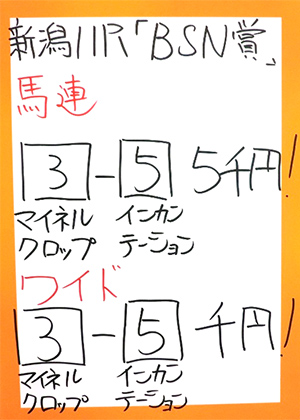 新潟11R「BSN賞」
馬連
3-5 5千円!
マイネル インカン
クロップ テーション
ワイド
3-5 千円!
マイネル インカン
クロップ テーション